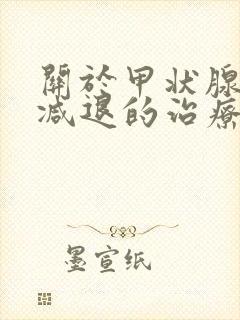 關於甲状腺
减退的治療
墨宣纸